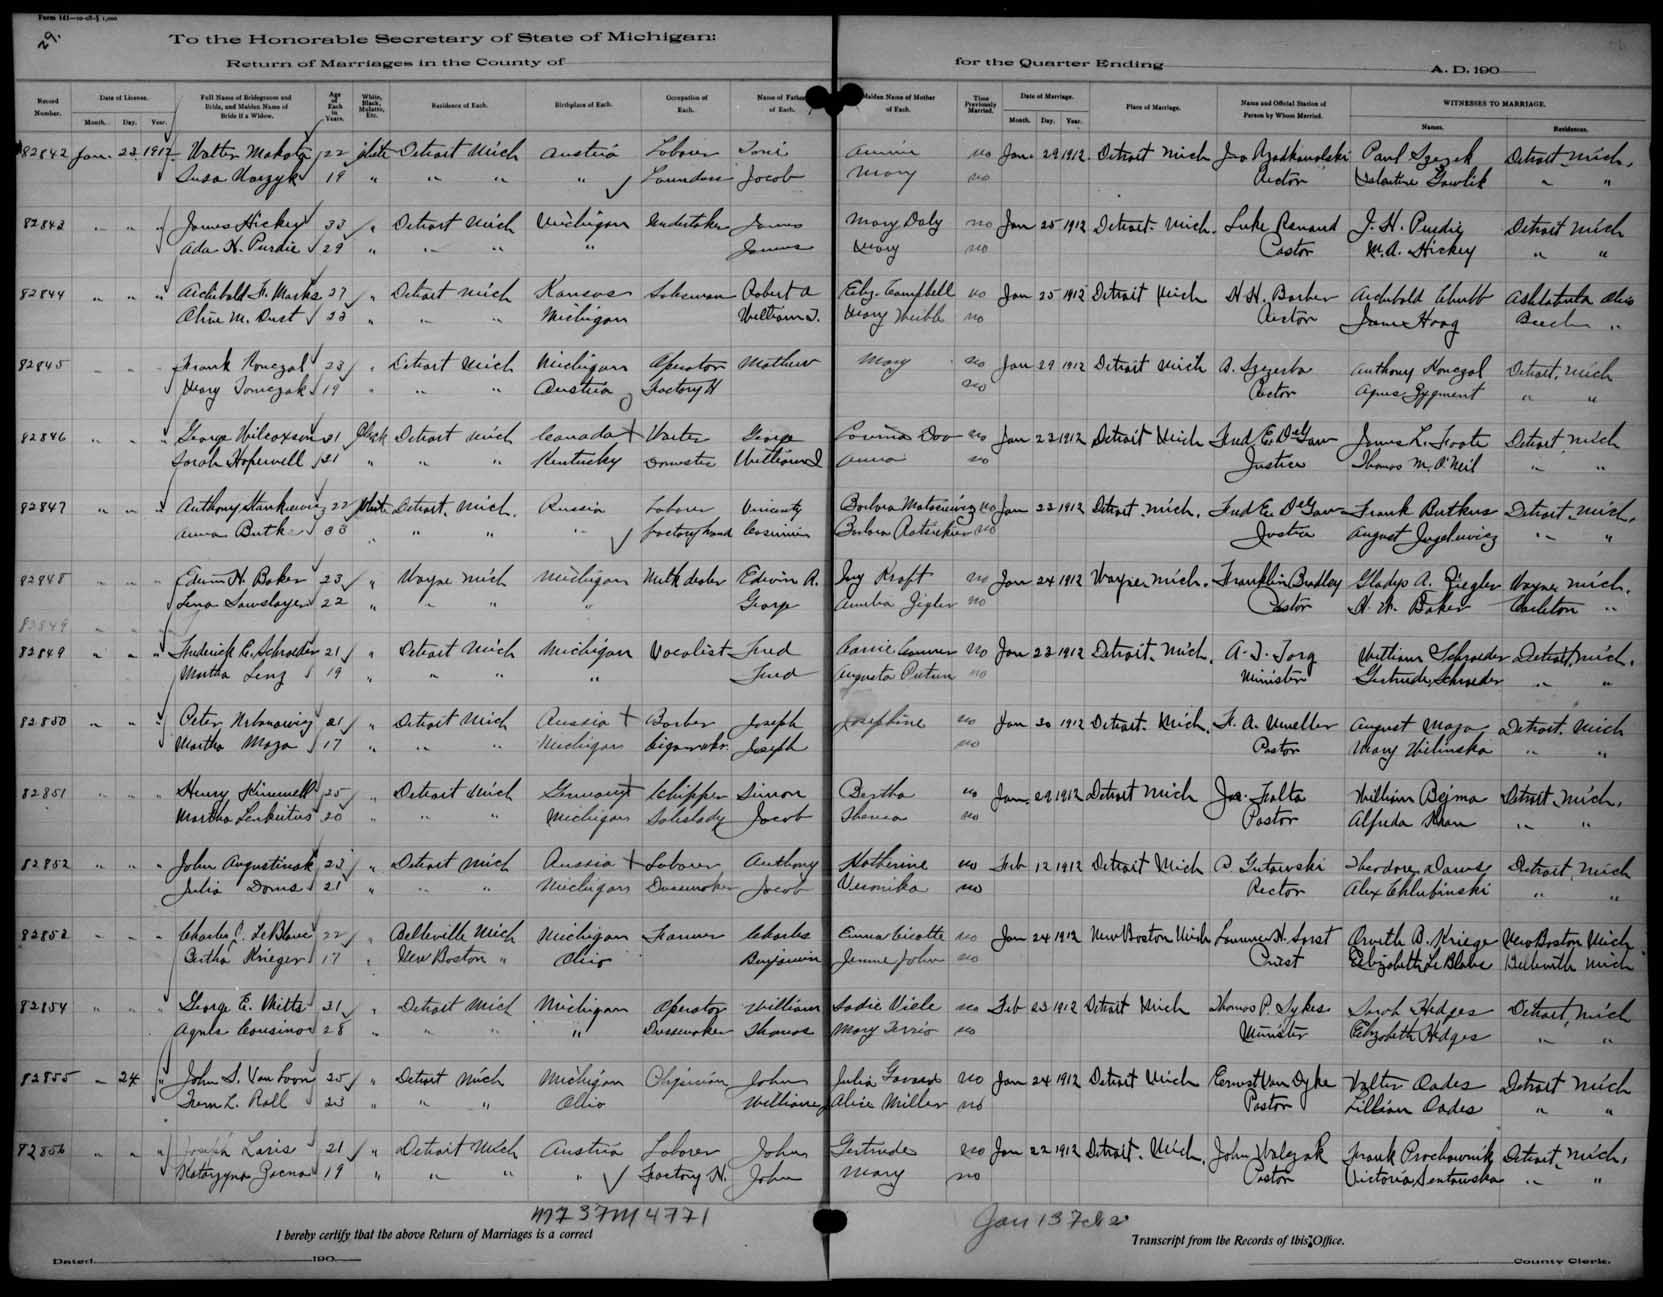 Form 141—10-08-5 1,000
29.
To the Honorable Secretary of State of Michigan:
Return of Marriages in the County of
for the Quarter Ending
A. D. 190
Record Number.
Date of License.
Month. Day. Year.
Full Name of Bridegroom and Bride, and Maiden Name of Bride if a Widow.
Age of Each in Years.
White, Black, Mulatto, Etc.
Residence of Each.
Birthplace of Each.
Occupation of Each.
Name of Father of Each.
Maiden Name of Mother of Each.
Time Previously Married.
Date of Marriage.
Month. Day. Year.
Place of Marriage.
Name and Official Station of Person by Whom Married.
WITNESSES TO MARRIAGE.
Names. Residences.
82842 Jan. 22 1912 Walter 22 White Detroit Mich Austria Laborer no Jan. 29 1912 Detroit Mich Paul Detroit, Mich.
19 " " " " Laundress Jacob Mary no Rector Valentine Gawlik " "
82843 " " " James Hickey 33 " Detroit Mich Michigan Undertaker James Mary Daly no Jan 25 1912 Detroit Mich. Luke Renaud J. H. Purdie Detroit Mich
Ada H. Purdie 29 " " " " James Mary no Pastor M. A. Hickey " "
82844 " " " Archibald F. Marks 27 " Detroit Mich Kansas Salesman Robert A Eliz. Campbell no Jan 25 1912 Detroit Mich H. H. Barber Archibald Chubb Ashtabula Ohio
Olive M. Dust 23 " " " Michigan William J. Mary no Rector "
82845 " " " Frank Konczal 23 " Detroit Mich Michigan Operator Mathew Mary no Jan 29 1912 Detroit Mich A. Szczerba Anthony Konczal Detroit, Mich
Mary Tomczak 19 " " " Austria Factory H no Rector Agnes Zygment " "
82846 " " " George Wilcoxson 21 Black Detroit Mich Canada Waiter George no Jan 22 1912 Detroit Mich Fred E. DeGaw James L. Foote Detroit, Mich
Sarah Hopewell 21 " " " Kentucky Domestic William Anna no Justice Thomas M. O'Neil " "
82847 " " " Anthony Stankiewicz 22 White Detroit, Mich. Russia Laborer Vincenty Barbara no Jan 22 1912 Detroit Mich. Fred E. DeGaw Frank Butkus Detroit, Mich.
Anna 33 " " " " factory hand Casimir Barbara no Justice August " "
82848 " " " Edwin H. Baker 23 " Wayne Mich Michigan Milk dealer Edwin R. Kraft no Jan 24 1912 Wayne, Mich. Franklin Bradley Gladys A. Ziegler Wayne Mich.
Lena 22 " " " " George Amelia Zigler no Pastor H. W. Baker Carleton "
82849 " "
82849 " " " Frederick C. Schroeder 21 " Detroit Mich Michigan Vocalist Fred no Jan 23 1912 Detroit, Mich. William Schroeder Detroit, Mich.
Martha Lenz 19 " " " " Fred Augusta no Minister Gertrude Schroeder " "
82850 " " " Peter Urbanowicz 21 " Detroit Mich Russia Barber Joseph Josephine no Jan 30 1912 Detroit Mich. F. A. Mueller August Maza Detroit, Mich
Martha Maza 17 " " " Michigan Cigar mkr. Joseph no Pastor Mary Wilinska " "
82851 " " " Henry 25 " Detroit Mich Germany Chipper Simon Bertha no Jan. 29 1912 Detroit Mich Jos. Folta William Bejma Detroit, Mich.
Martha 20 " " " Michigan Saleslady Jacob Theresa no Pastor Alfreda " "
82852 " " " John Augustinak 23 " Detroit Mich Russia Laborer Anthony Katherine no Feb 12 1912 Detroit Mich P. Gutowski Theodore Detroit, Mich
Julia 21 " " " Michigan Dressmaker Jacob Veronika no Rector Alex Chlubinski " "
82853 " " " Charles C. LeBlanc 22 " Belleville Mich Michigan Farmer Charles Emma Cicotte no Jan 24 1912 New Boston Mich Orvith B. Krieger New Boston Mich
Bertha Krieger 17 " New Boston " Ohio Benjamin Jennie John no Priest Elizabeth LeBlanc Belleville Mich
82854 " " " George E. Mitts 31 " Detroit Mich Michigan Operator William Sadie Viele no Feb 23 1912 Detroit Mich Thomas P. Sykes Sarah Hedges Detroit, Mich
Agnes Cousino 28 " " " " Dressmaker Thomas Mary no Minister Elizabeth Hedges " "
82855 " 24 " John S. Van Loon 25 " Detroit Mich Michigan Physician John Julia no Jan 24 1912 Detroit Mich Ernest Van Dyke Walter Oades Detroit Mich
Fern L. Rall 23 " " " Ohio William Alice Miller no Pastor Lillian Oades " "
82856 " " " Joseph Laris 21 " Detroit Mich Austria Laborer John Gertrude no Jan 22 1912 Detroit Mich. John Walczak Frank Prochownik Detroit, Mich.
Katarzyna 19 " " " " Factory H. John Mary no Pastor Victoria " "
I hereby certify that the above Return of Marriages is a correct
Transcript from the Records of this Office.
Dated 190
County Clerk.